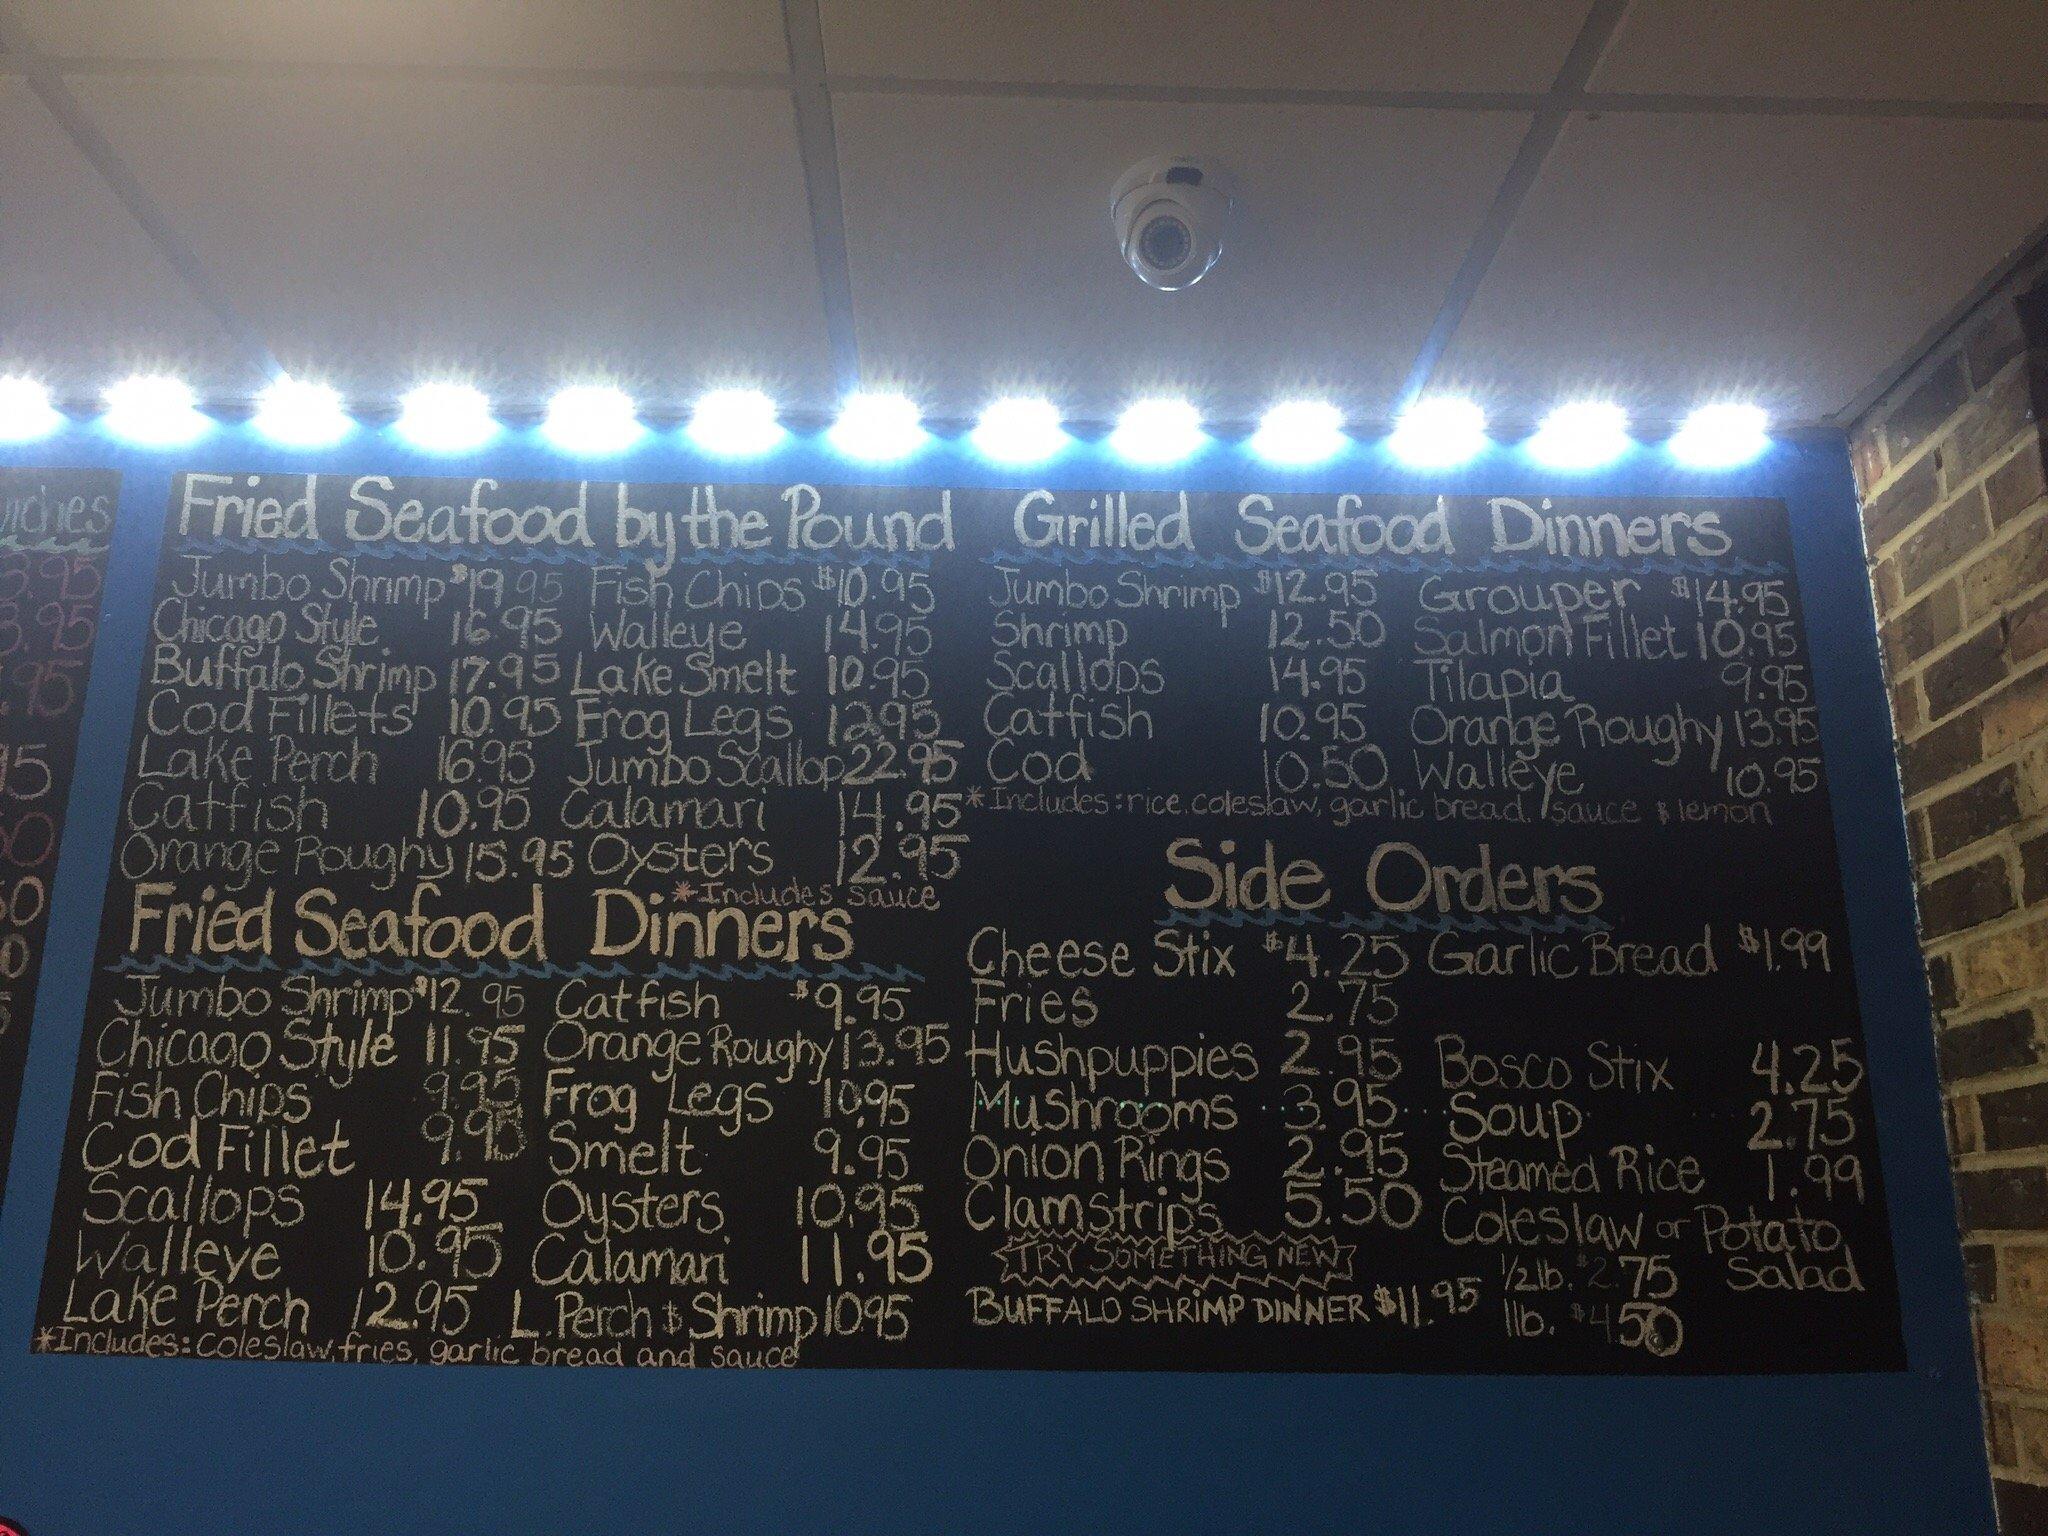 Fried Seafood by the Pound
Jumbo Shrimp $19.95 Fish Chips $10.95
Chicago Style 16.95 Walleye 14.95
Buffalo Shrimp 17.95 Lake Smelt 10.95
Cod Fillets 10.95 Frog Legs 12.95
Lake Perch 16.95 Jumbo Scallop 22.95
Catfish 10.95 Calamari 14.95
Orange Roughy 15.95 Oysters 12.95
*Includes sauce
Fried Seafood Dinners
Jumbo Shrimp $12.95 Catfish $9.95
Chicago Style 11.95 Orange Roughy 13.95
Fish Chips 9.95 Frog Legs 10.95
Cod Fillet 9.95 Smelt 9.95
Scallops 14.95 Oysters 10.95
Walleye 10.95 Calamari 11.95
Lake Perch 12.95 L. Perch & Shrimp 10.95
*Includes: coleslaw, fries, garlic bread and sauce
Grilled Seafood Dinners
Jumbo Shrimp $12.95 Grouper $14.95
Shrimp 12.50 Salmon Fillet 10.95
Scallops 14.95 Tilapia 9.95
Catfish 10.95 Orange Roughy 13.95
Cod 10.50 Walleye 10.95
*Includes: rice, coleslaw, garlic bread, sauce & lemon
Side Orders
Cheese Stix $4.25 Garlic Bread $1.99
Fries 2.75
Hushpuppies 2.95 Bosco Stix 4.25
Mushrooms 3.95 Soup 2.75
Onion Rings 2.95 Steamed Rice 1.99
Clamstrips 5.50 Coleslaw or Potato Salad
1/2 lb. $2.75
1lb. $4.50
TRY SOMETHING NEW
BUFFALO SHRIMP DINNER $11.95